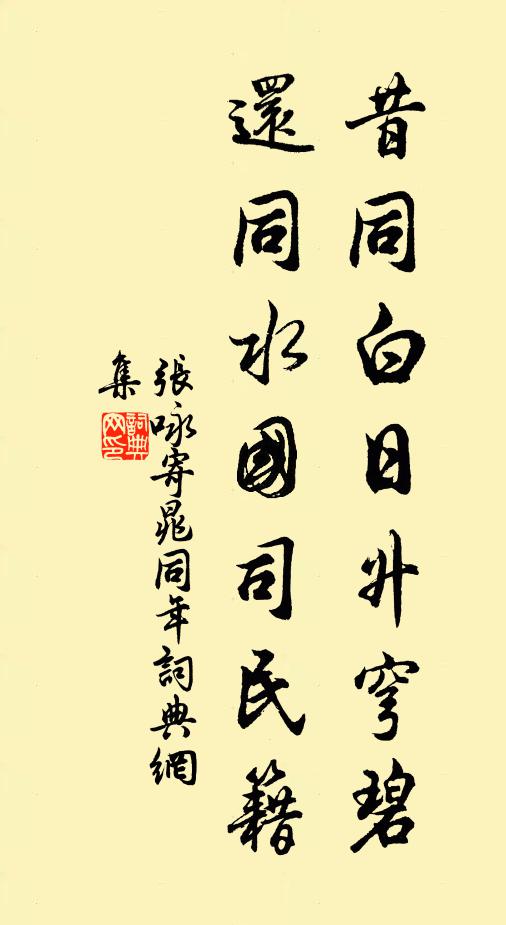 昔同白日升穹碧
還同水國司民籍
張咏寄晁同年詞典網
集
詞典
网印